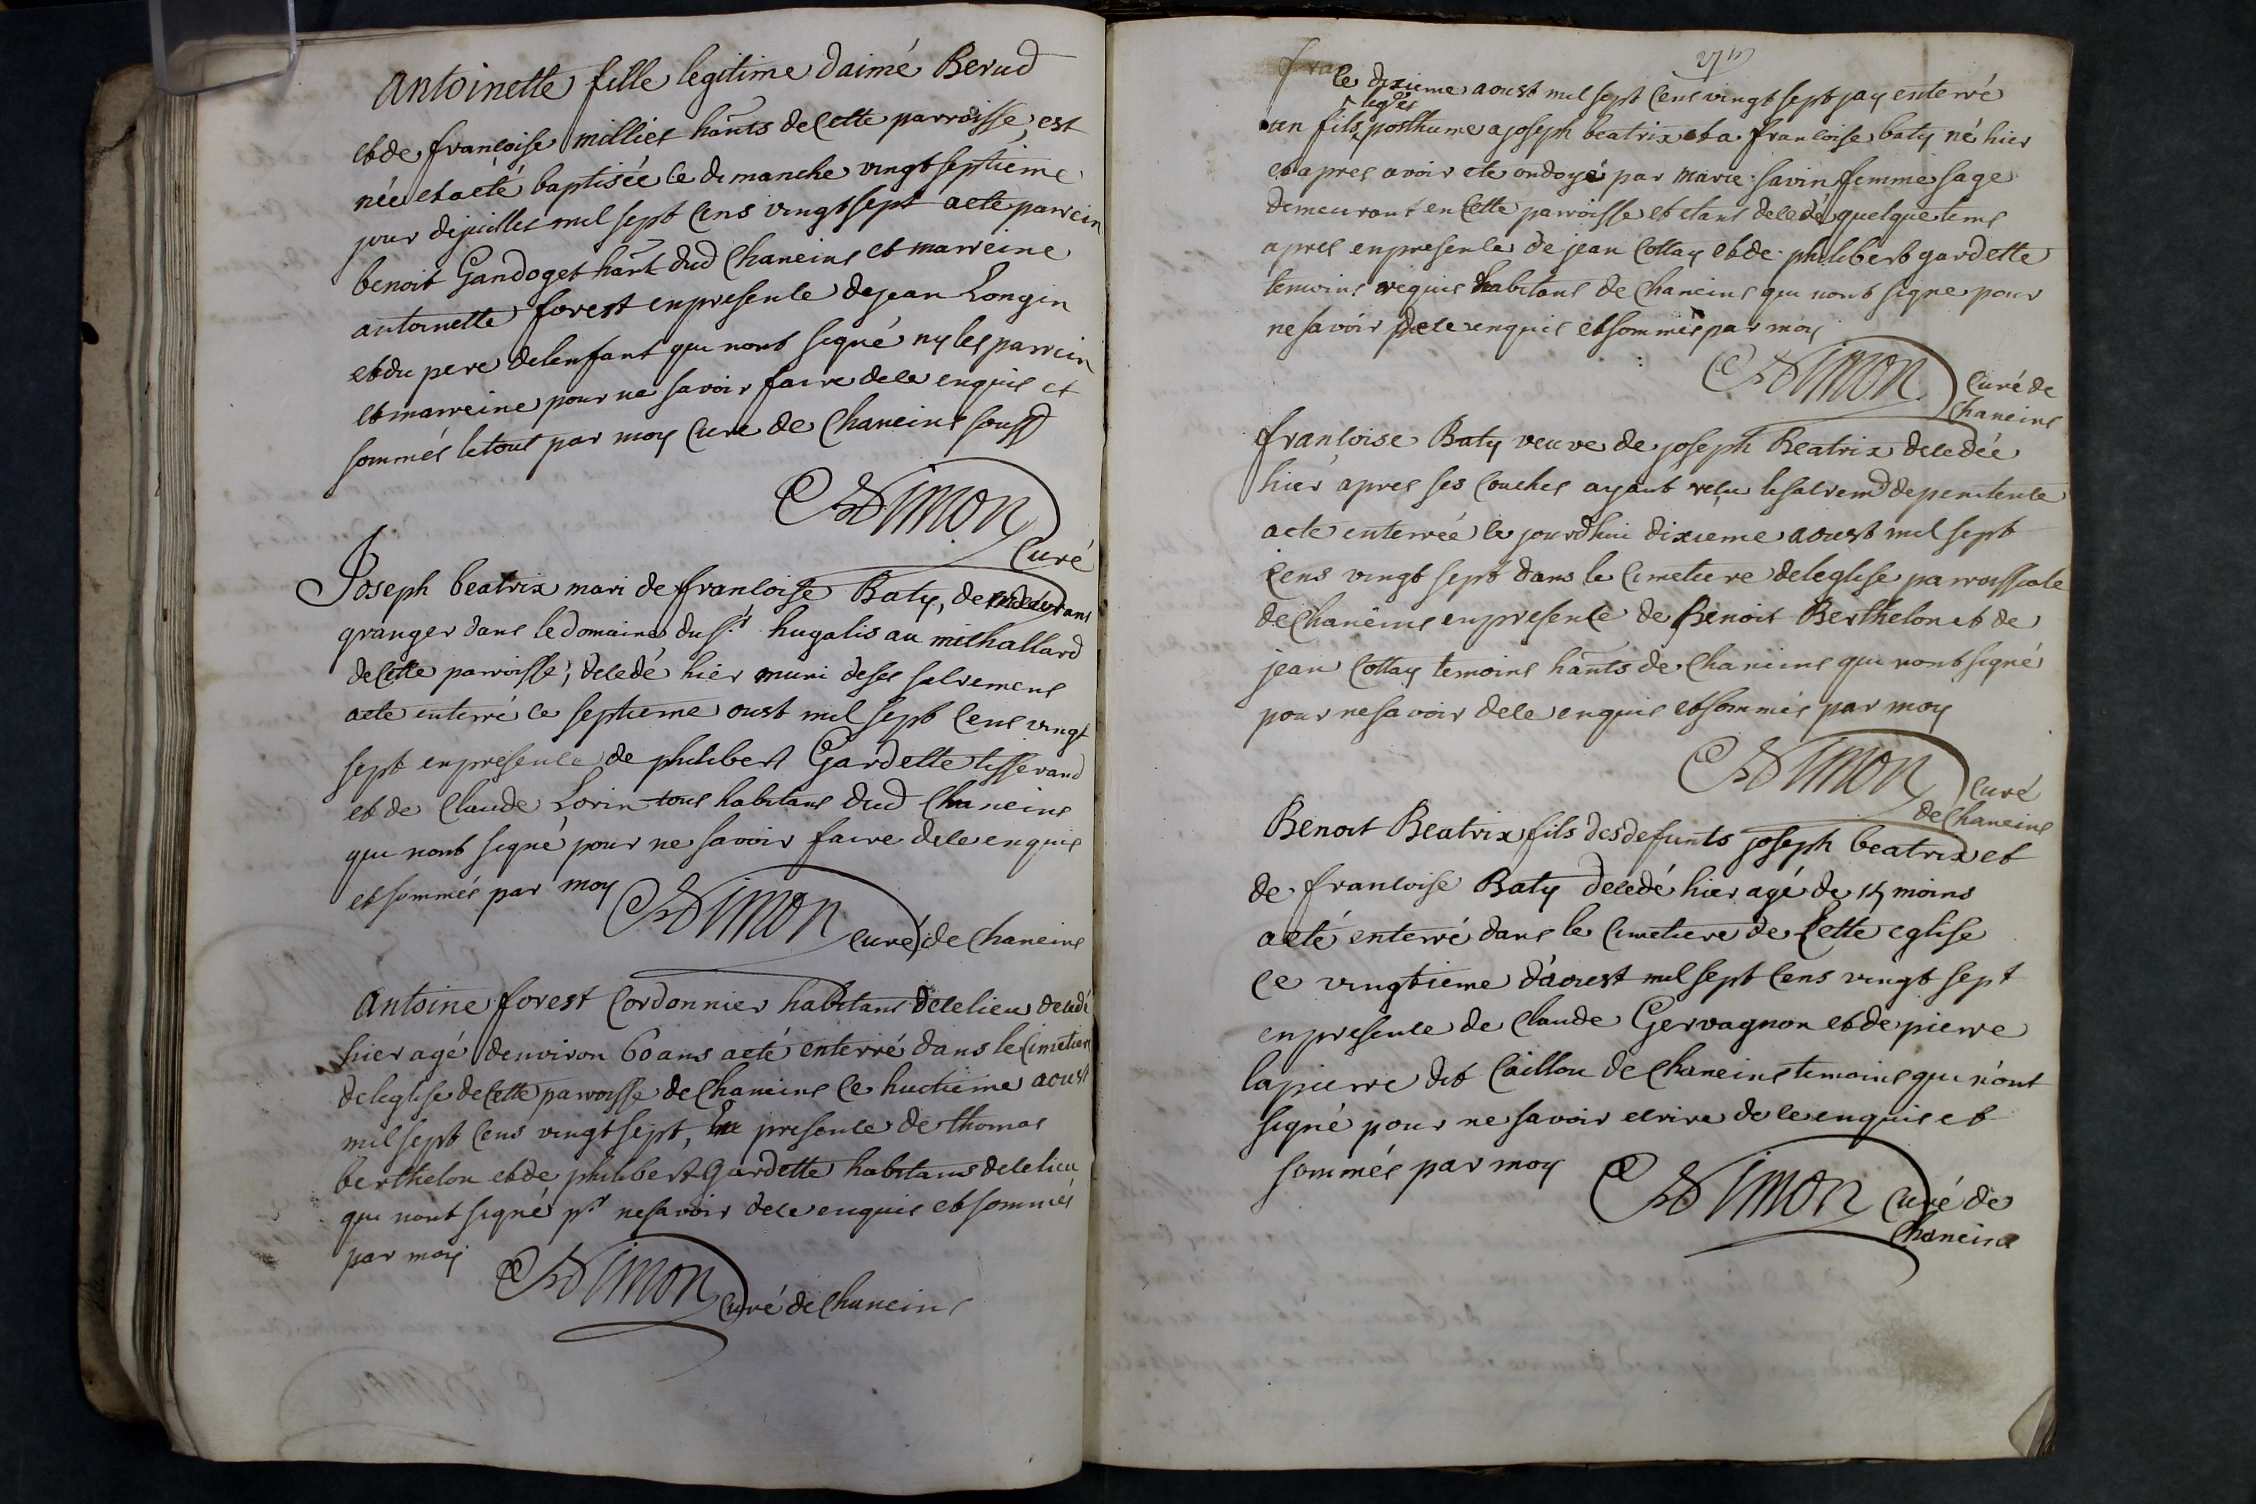 Antoinette fille legitime daimé Berud
et de françoise milliet hants de cette parroisse, est
née et a eté baptisée le dimanche vingt septieme
jour de juillet mil sept cens vingt sept a eté parrein
benoit Gandoget hant dud Chaneins et marreine
antoinette forest en presence de jean Longin
et du pere de lenfant qui nont signé ny les parrein
et marreine pour ne savoir faire de ce enquis et
sommés le tout par moy curé de Chaneins soussd
Simon
Curé
Joseph beatrix mari de françoise Baty, demeurant
granger dans le domaine du sr. hugalis au michallard
de cette parroisse, decedé hier muni de ses sacremens
a eté enterré ce septieme oust mil sept cens vingt
sept en presence de philibert Gardette tisserand
et de Claude Lorin tous habitans dud Chaneins
qui nont signé pour ne savoir faire de ce enquis
et sommés par moy Simon curé de Chaneins
Antoine forest Cordonnier habitant de ce lieu decedé
hier agé denviron 60 ans a eté enterré dans le Cimetiere
de leglise de cette parroisse de Chaneins ce huctieme aoust
mil sept cens vingt sept, en presence de thomas
berthelon et de philibert Gardette habitans de ce lieu
qui nont signé pr ne savoir de ce enquis et sommés
par moy Simon curé de Chaneins
le dixieme aoust mil sept cens vingt sept jay enterré
un fils posthume a joseph beatrix et a françoise baty né hier
et apres avoir ete ondoyé par marie savin femme sage
demeurant en cette parroisse et etant decedé quelque tems
apres en presence de jean Collay et de philibert gardette
temoins requis habitans de Chaneins qui nont signe pour
ne savoir de ce enquis et sommés par moy
Simon curé de
Chaneins
françoise Baty veuve de joseph Beatrix decedée
hier apres ses couches ayant reçu le sacremd de penitence
a ete enterrée ce jourdhui dixieme aoust mil sept
cens vingt sept dans le cimetiere de leglise parroissiale
de Chaneins en presence de Benoit Berthelon et de
jean Collay temoins hants de Chaneins qui nont signé
pour ne savoir de ce enquis et sommés par moy
Simon curé
de Chaneins
Benoit Beatrix fils des defunts joseph beatrix et
de françoise Baty decedé hier agé de 15 moins
a eté enterré dans le cimetiere de cette eglise
ce vingtieme d'aoust mil sept cens vingt sept
en presence de Claude Gervagnon et de pierre
lapierre dit Caillou de Chaneins temoins qui n'ont
signé pour ne savoir ecrire de ce enquis et
sommés par moy Simon curé de
Chaneins